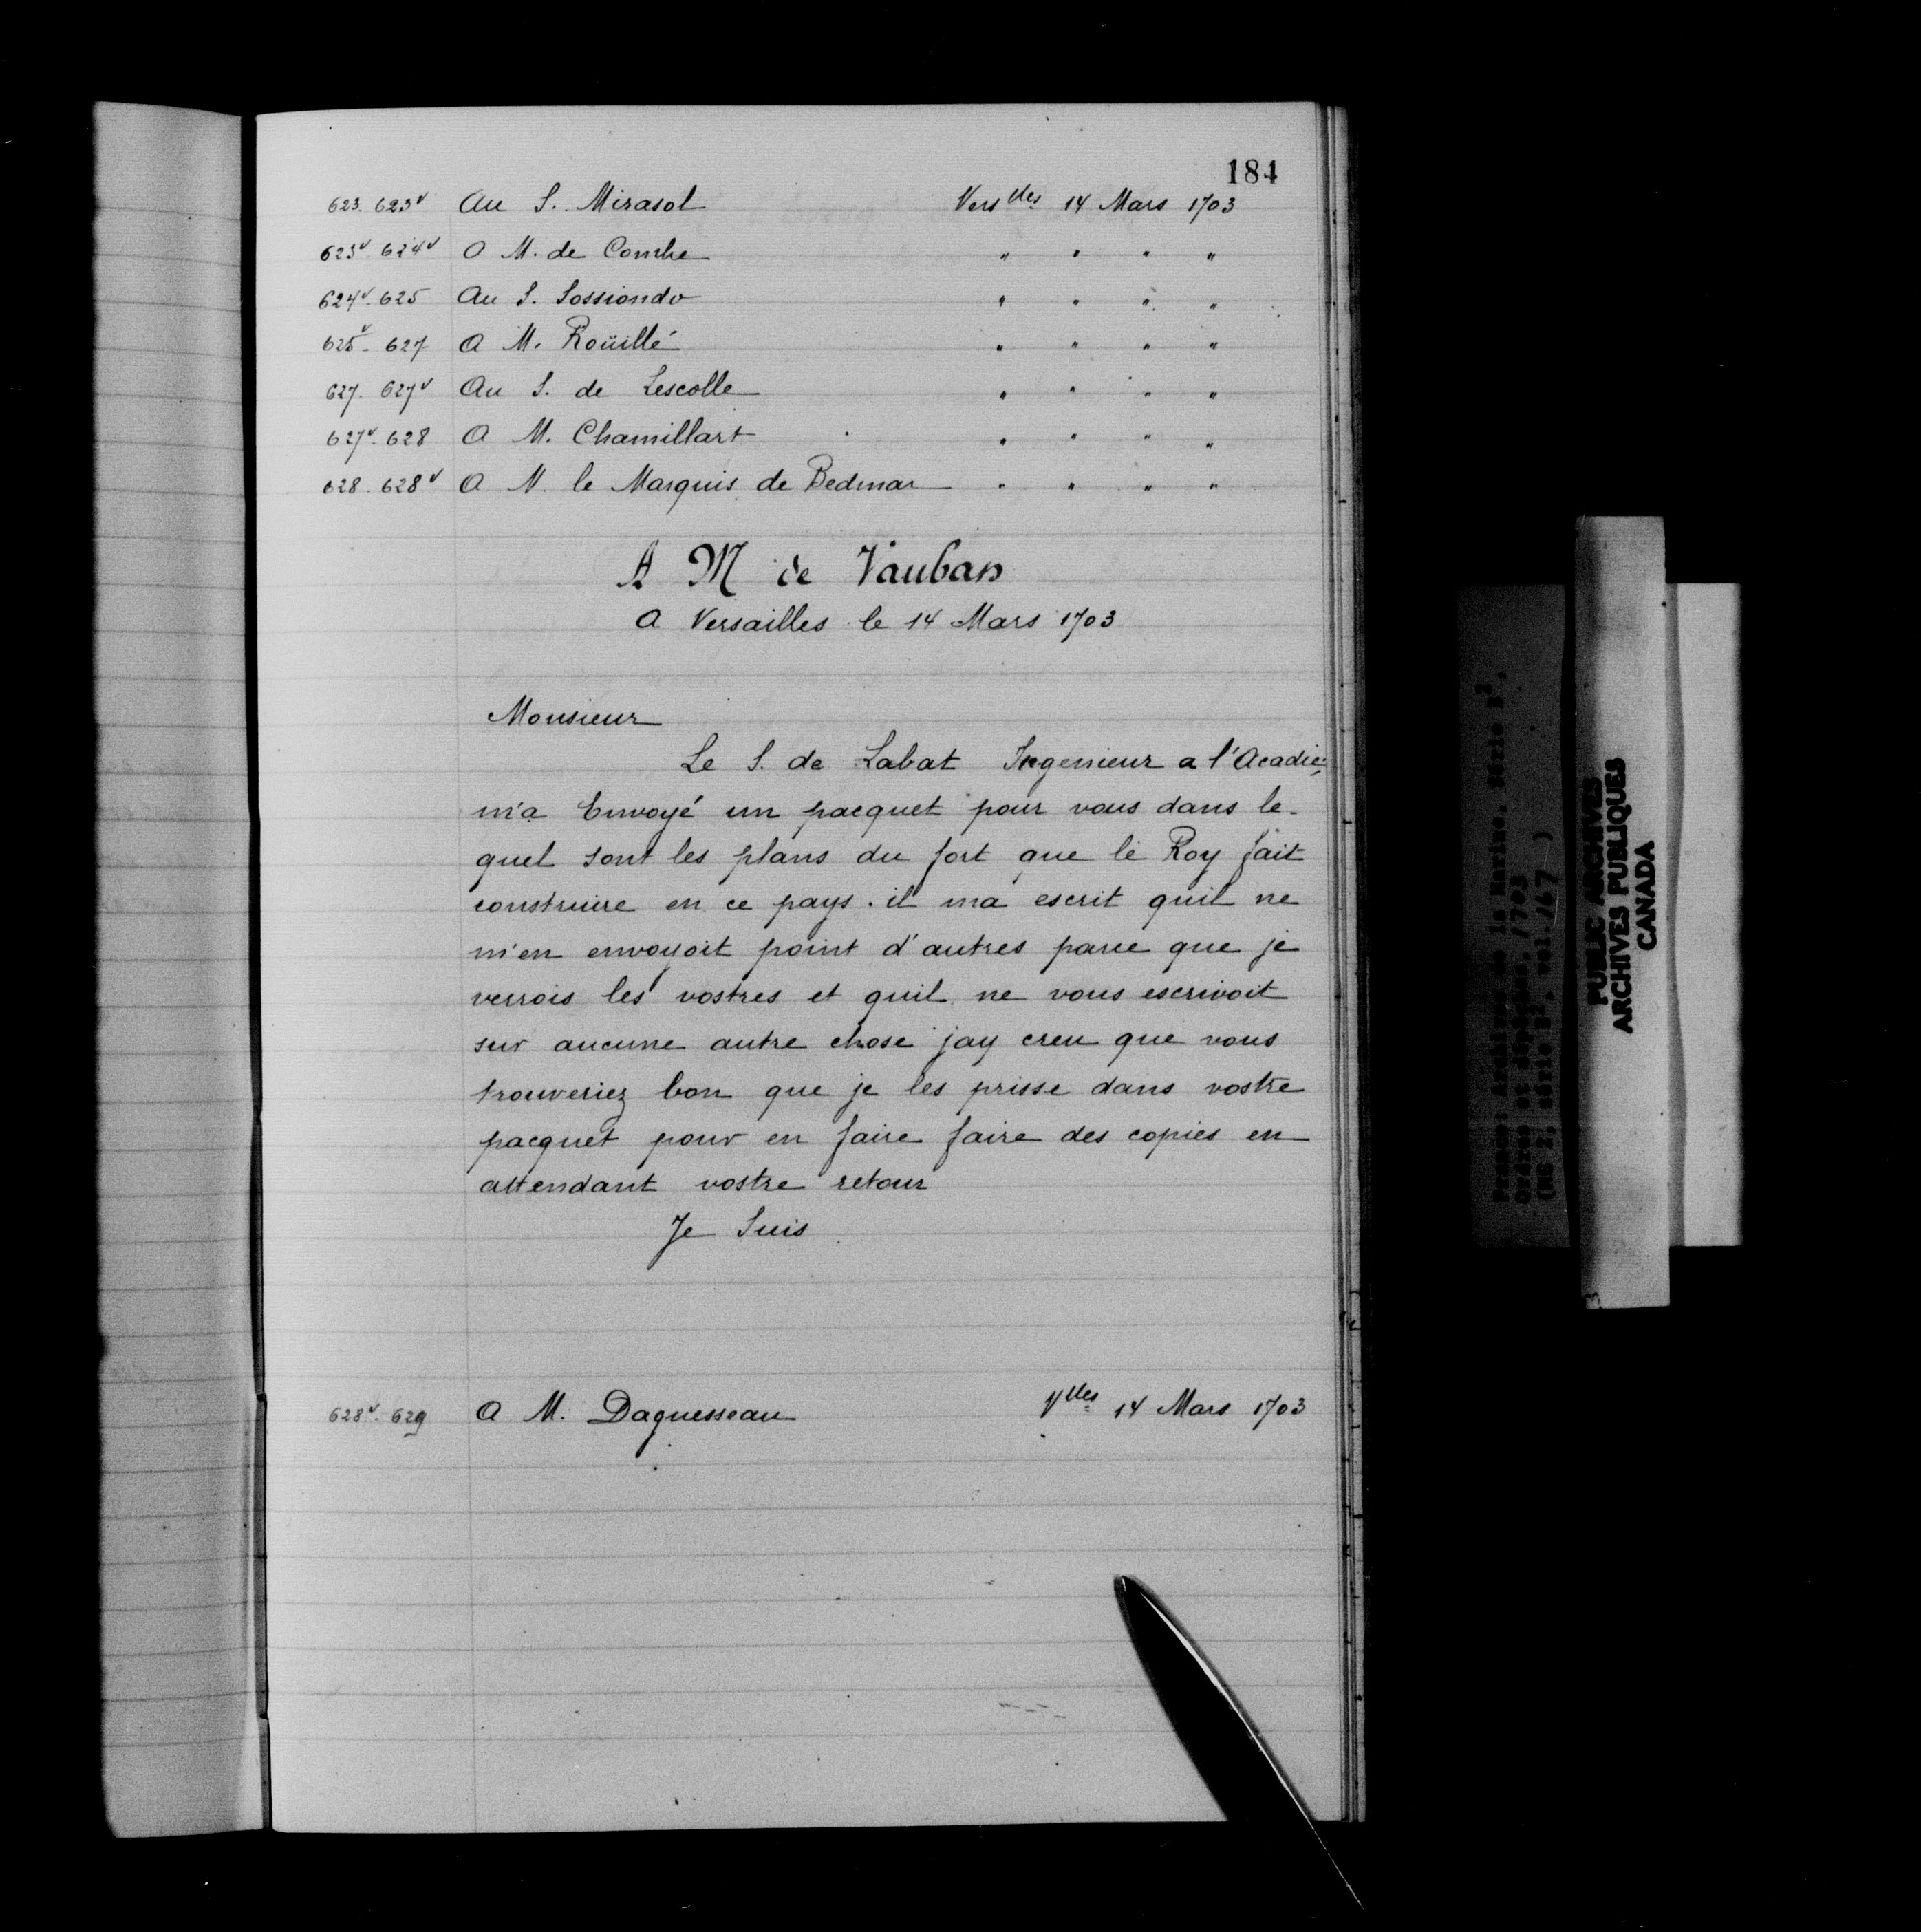 184
623. 623v Au S. Mirasol Vers lles 14 Mars 1703
623v. 624v A M. de Combe " " " "
624v. 625 Au S. Sossiondo " " " "
625v. 627 A M. Roüillé " " " "
627. 627v Au S. de Lescolle " " " "
627v. 628 A M. Chamillart " " " "
628. 628v A M. le Marquis de Bedmar " " " "
A M de Vauban
A Versailles le 14 Mars 1703
Monsieur
Le S. de Labat Ingenieur a l'Acadie,
m'a Envoyé un pacquet pour vous dans le-
quel sont les plans du fort que le Roy fait
construire en ce pays. il ma escrit quil ne
m'en envoyoit point d'autres parce que je
verrois les vostres et quil ne vous escrivoit
sur aucune autre chose jay creu que vous
trouveriez bon que je les prisse dans vostre
pacquet pour en faire faire des copies en
attendant vostre retour
Je Suis
628v. 629 A M. Daguesseau Vlles 14 Mars 1703
France: Archives de la Marine, Série B2,
Ordres et dépêches, 1703
(MG 2, série B2, vol. 167 )
PUBLIC ARCHIVES
ARCHIVES PUBLIQUES
CANADA